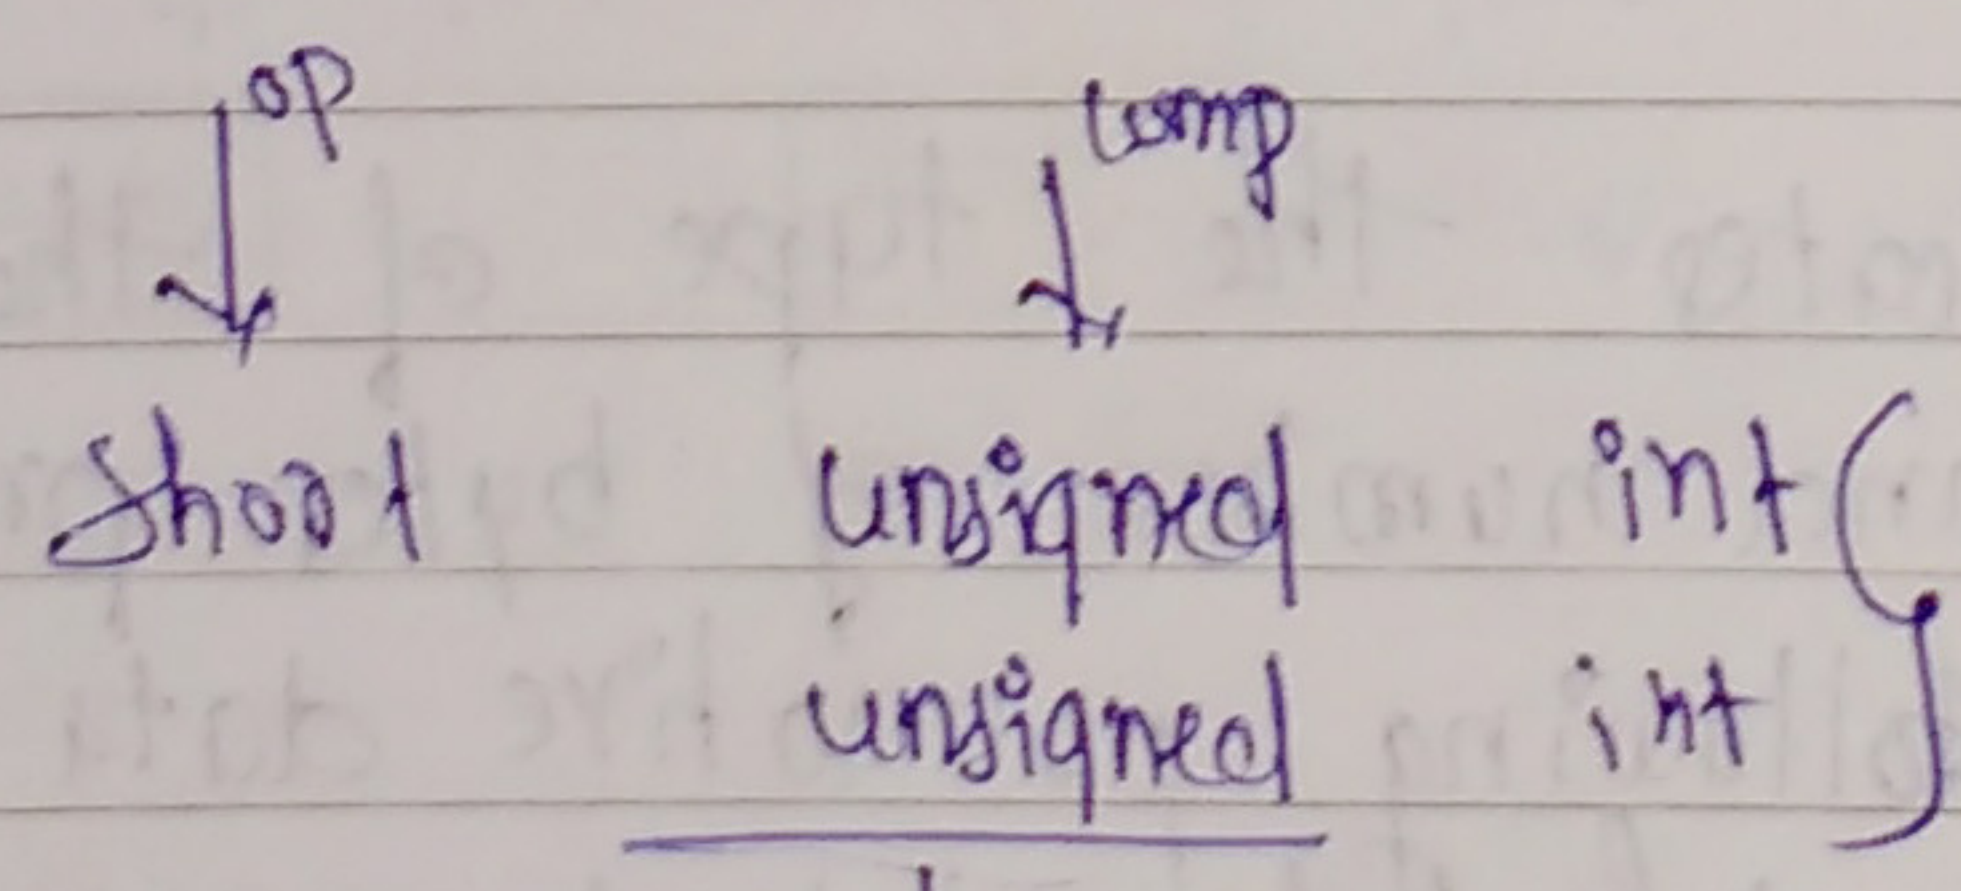 op comp
short unsigned int
unsigned int